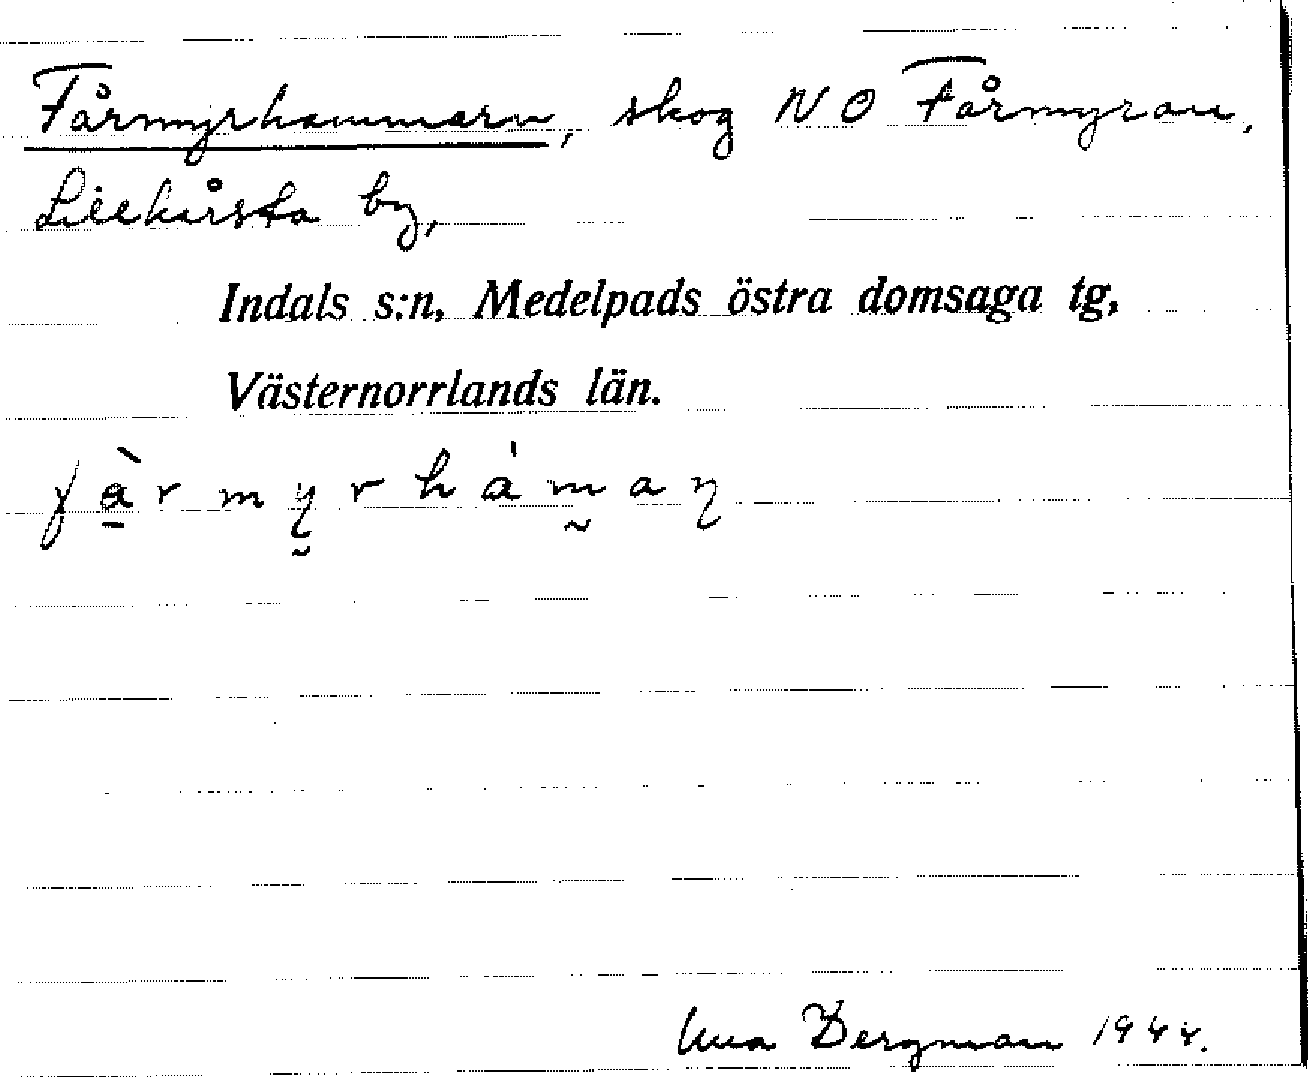 Fårmyrhammarn, skog NO Fårmyran,
Lillhårsta by,
Indals s:n, Medelpads östra domsaga tg,
Västernorrlands län.
Bergman 1944.